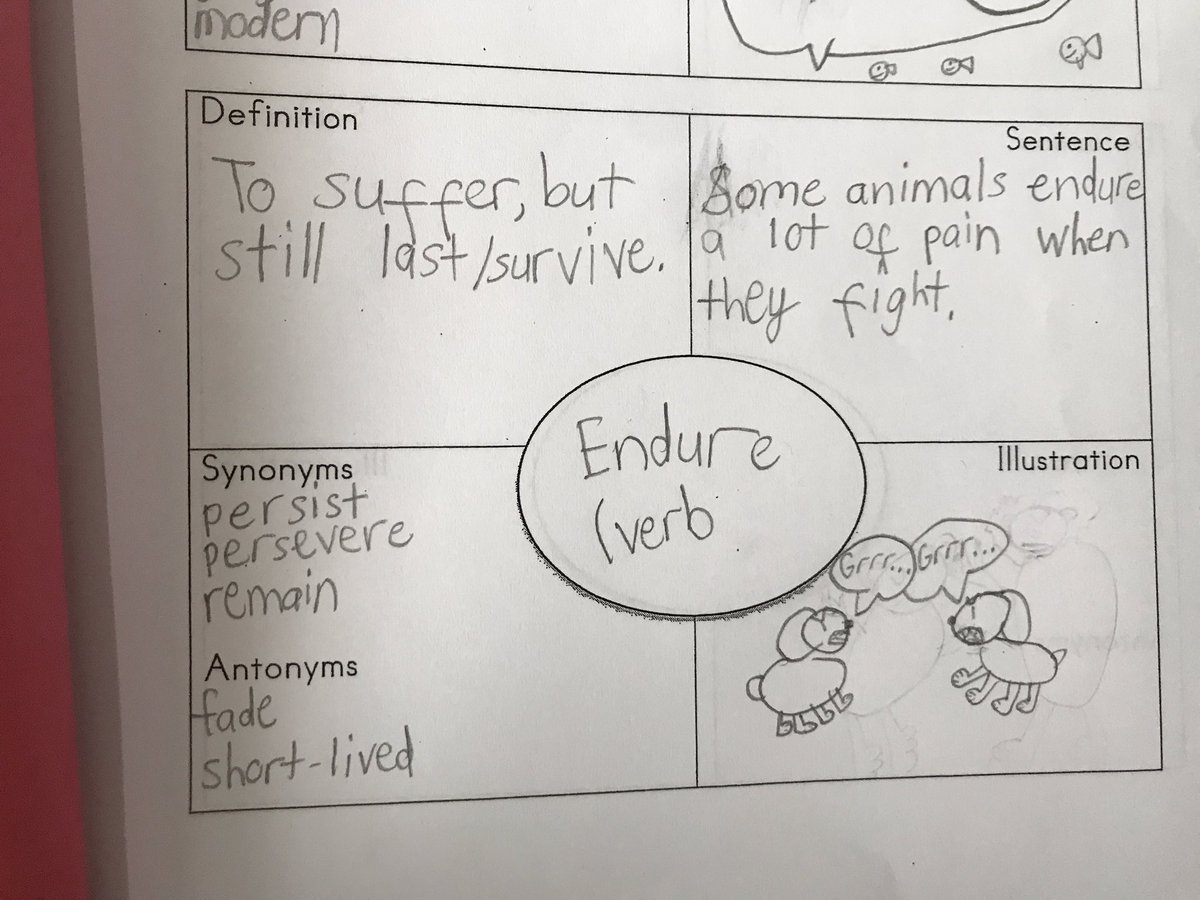 modern
Definition
To suffer, but
still last/survive.
Sentence
Some animals endure
a lot of pain when
they fight.
Endure
(verb
Synonyms
persist
persevere
remain
Antonyms
fade
short-lived
Illustration
Grrr... Grrr...